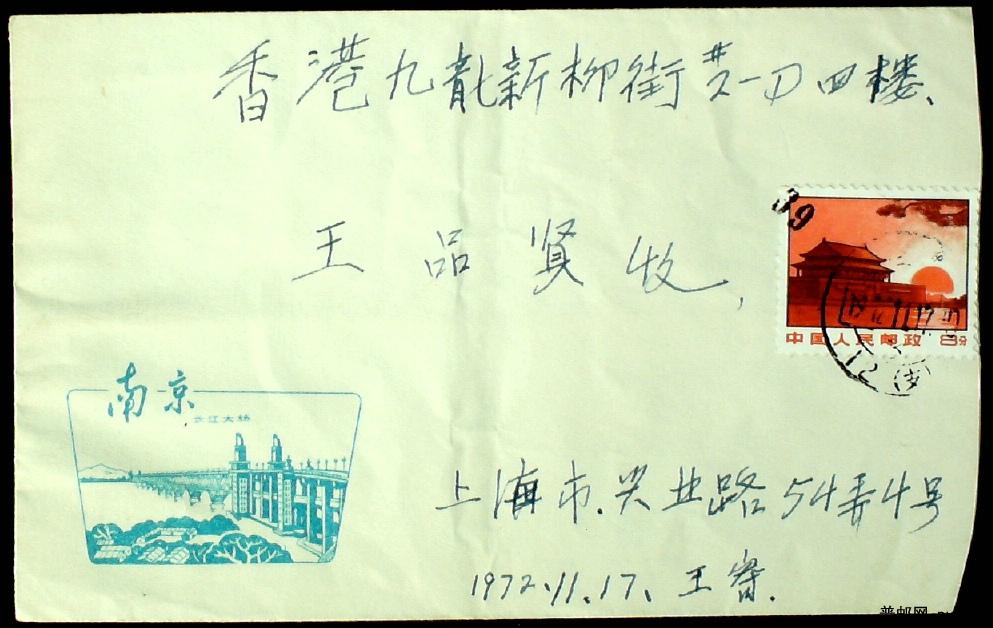 香港九龍新柳街廿一刀四楼、
王品贤收,
39
中国人民邮政 8分
南京
长江大桥
上海市.兴业路54弄4号
1972.11.17、王
普邮网